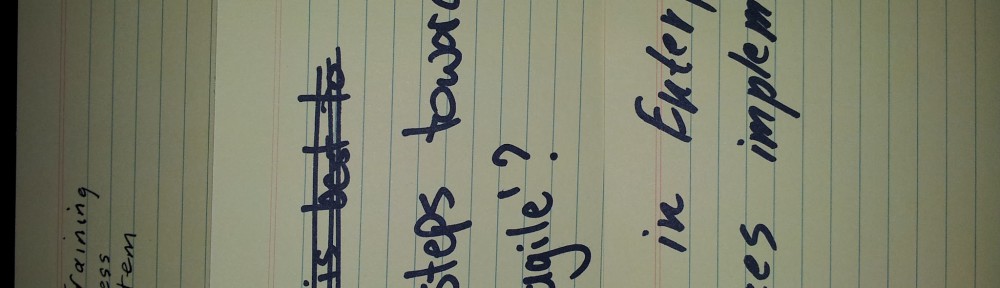 raining
ess
tem
is best to
Steps towar
agile'?
in Enterp
ees implem